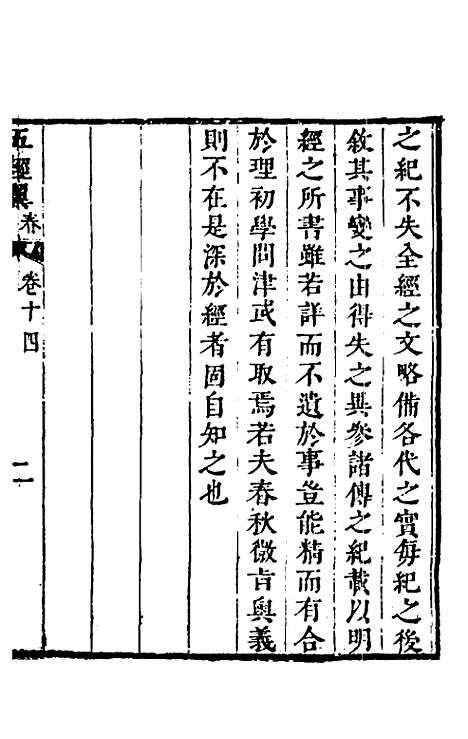 之紀不失全經之文略備各代之實每紀之後
敘其事變之由得失之異參諸傳之紀載以明
經之所書雖若詳而不遺於事豈能精而有合
於理初學問津或有取焉若夫春秋微旨奧義
則不在是深於經者固自知之也
五經翼 春秋 卷十四 二